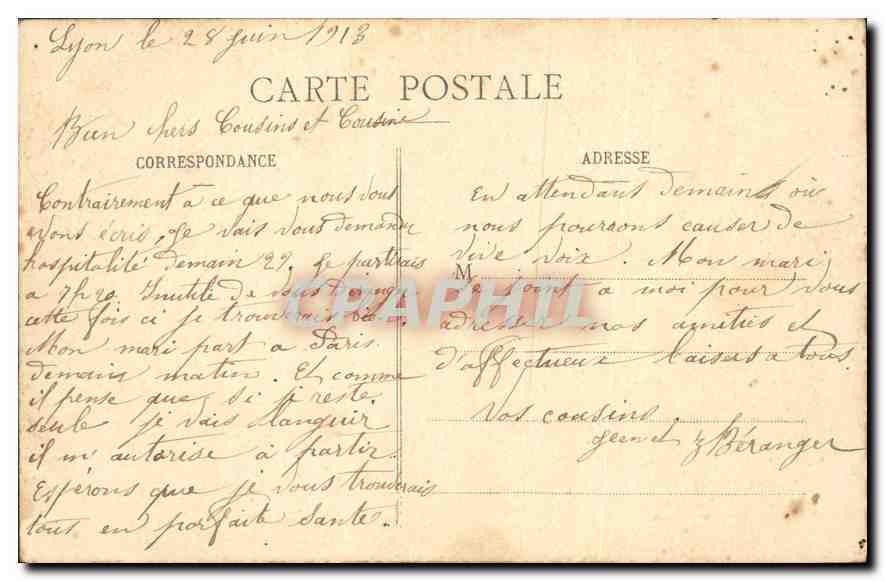 Lyon le 28 juin 1913
CARTE POSTALE
Bien chers Cousins et Cousine
CORRESPONDANCE
Contrairement à ce que nous vous
avons écris, je vais vous demander
hospitalité demain 29. Je partirais
a 7h20. Inutile de vous
cette fois ci je trouverais
Mon mari part a Paris
demain matin. Et comme
il pense que si je reste
seule je vais languir
il m'autorise à partir.
Espérons que je vous trouverais
tous en parfaite santé.
ADRESSE
En attendant demain où
nous pourrons causer de
vive voix. Mon mari
M
se joint a moi pour vous
adresser nos amitiés et
d'affectueux baisers a tous.
Vos cousins.
et Béranger
CPAPHIL